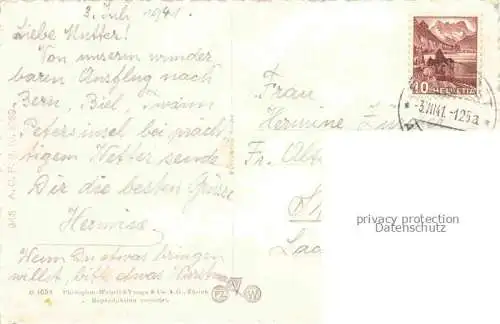 3. Juli 1941.
Liebe Mutter!
Von unserm wunder
baren Ausflug nach
Bern, Biel,
Petersinsel bei präch
tigem Wetter sende
Dir die besten Grüsse
Hermine
Wenn Du etwas bringen
willst, bitte etwas
10 HELVETIA
-3.VII.41.-125a
Frau
Hermine
Fr.
privacy protection
Datenschutz
Photoglob-Wehrli & Vouga & Co. A.G., Zürich
Reproduktion verboten
PZ W